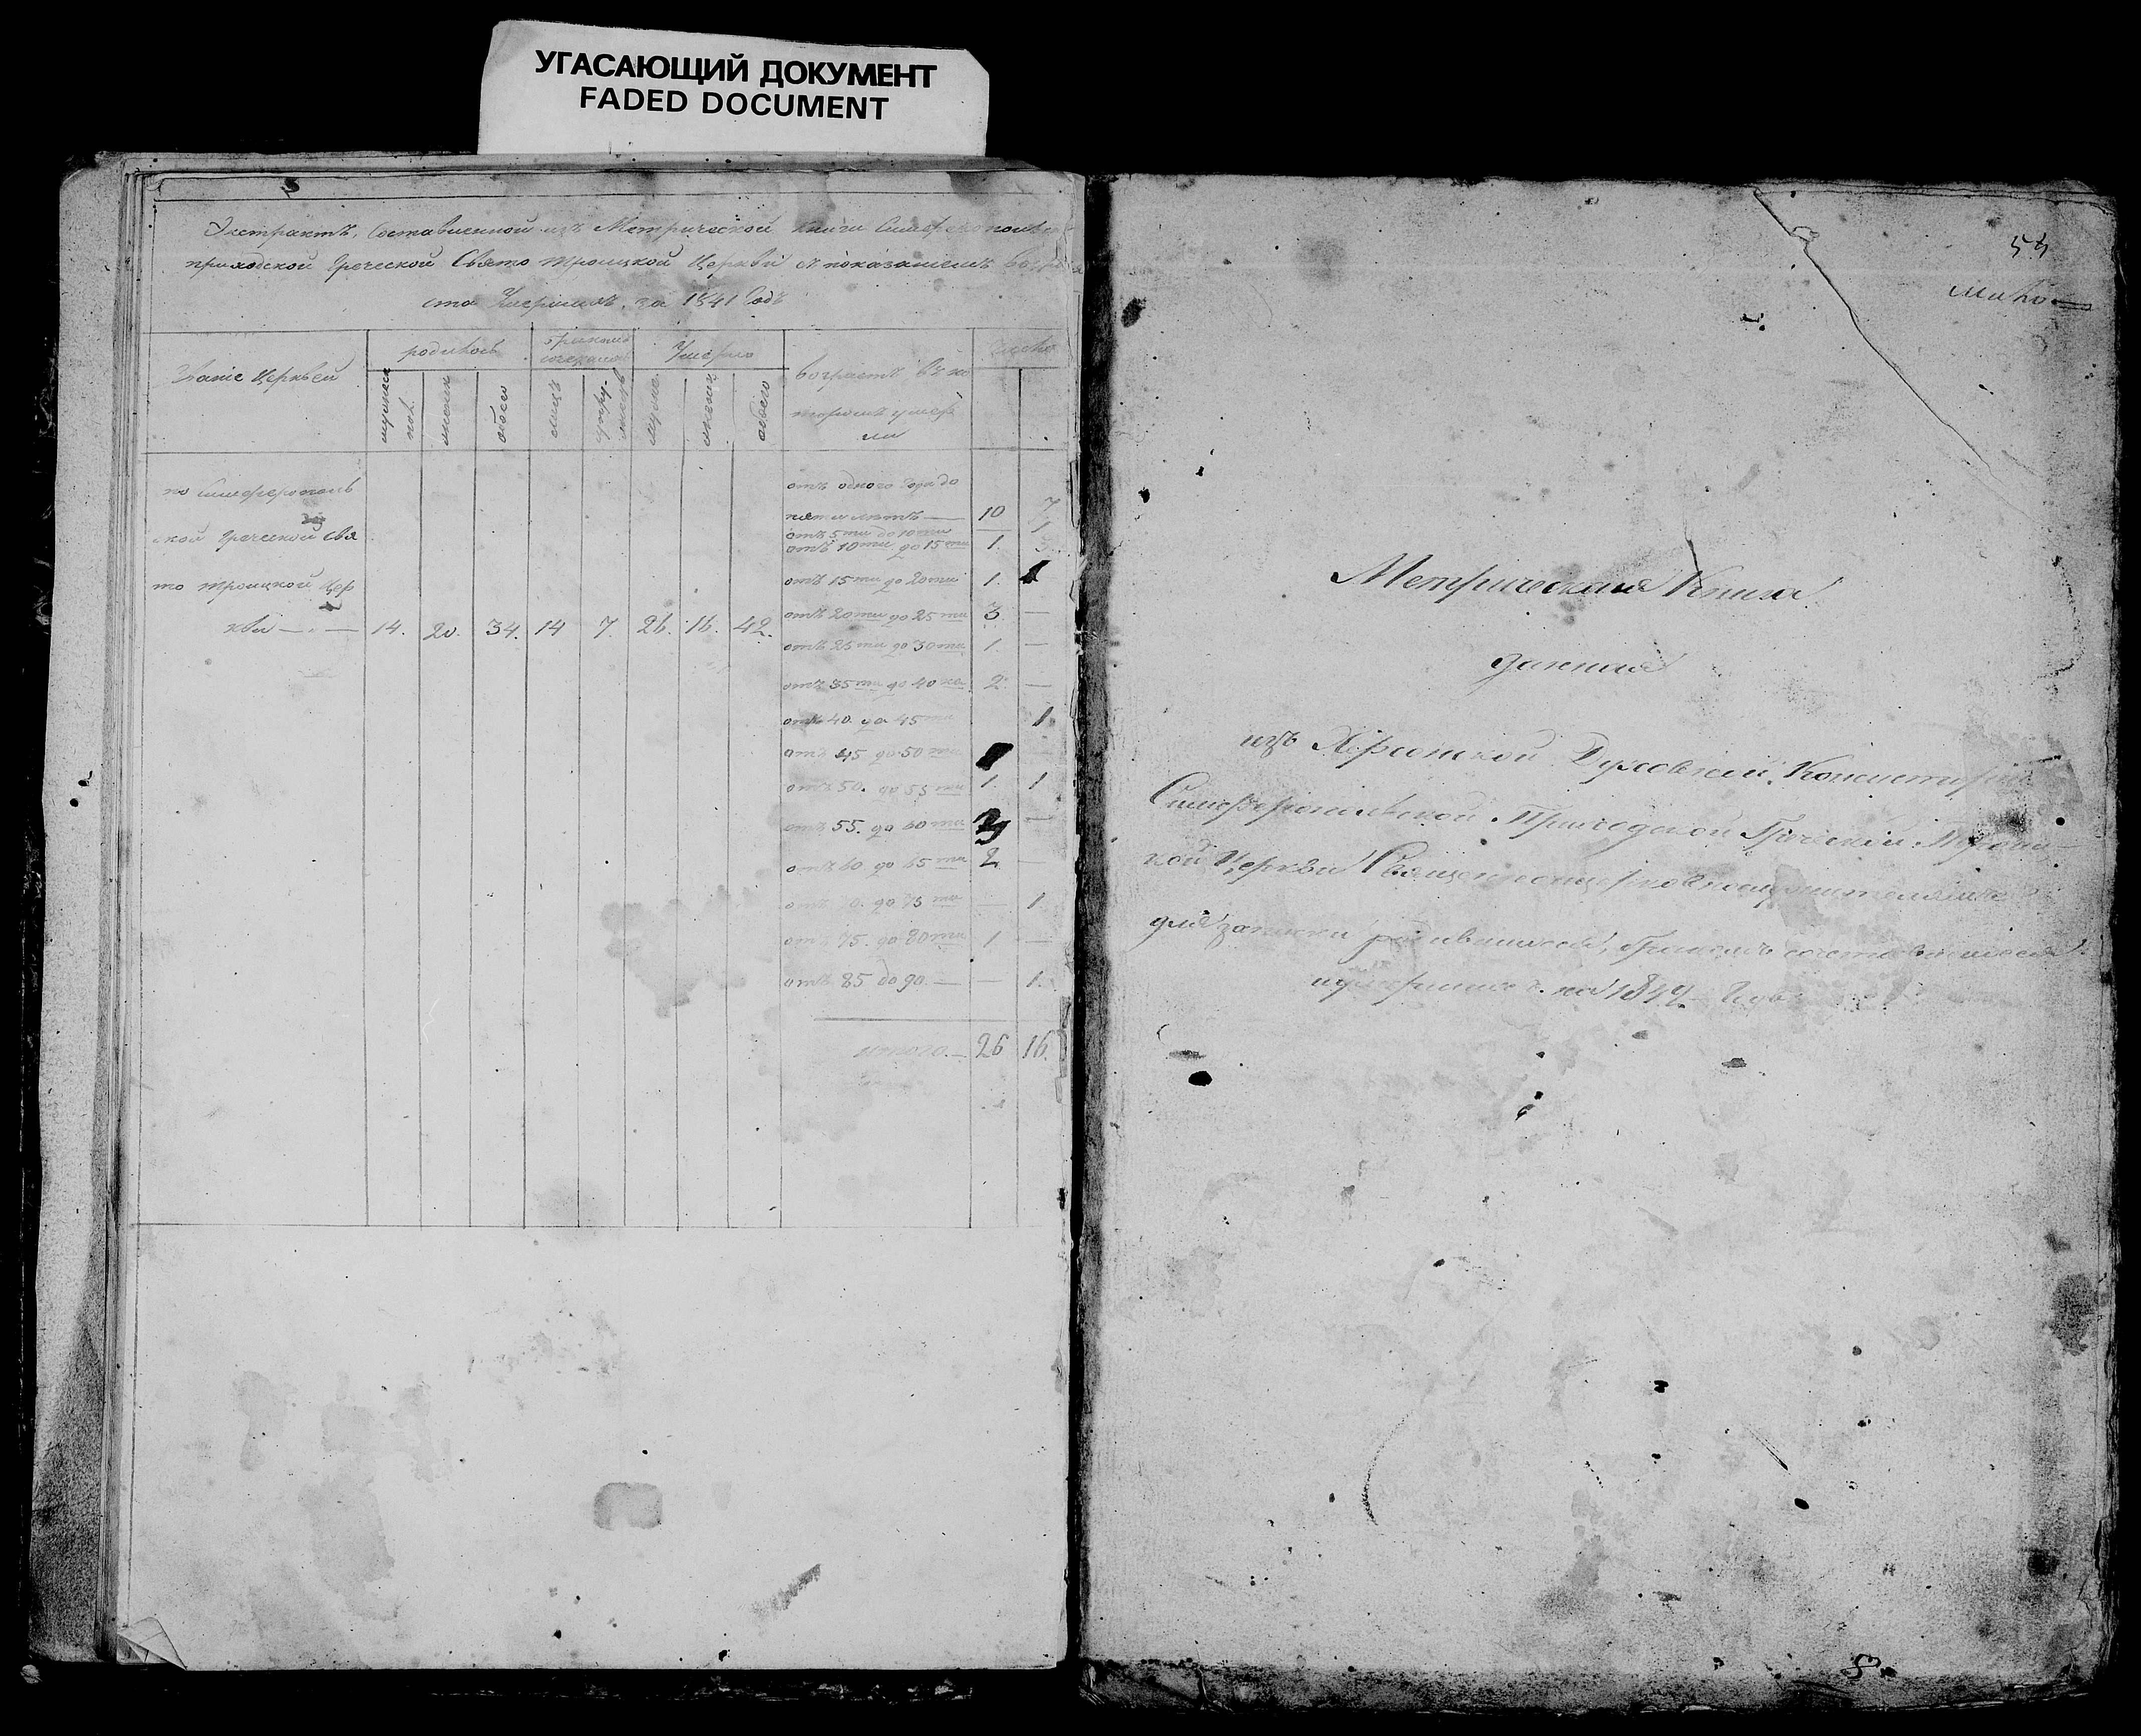 УГАСАЮЩИЙ ДОКУМЕНТ
FADED DOCUMENT
Экстрактъ, составленной изъ Метрической книги Симферопольс
приходской Греческой Свято Троицкой Церкви съ показаніемъ возра
ста Умершихъ, за 1841 Годъ
Званіе Церквей
родилось
Умерло
число
мужеска пол.
женска
обоего
возрастъ въ ко
торомъ умер
ли
по Симферополь
ской Греческой Свя
то Троицкой Цер
кви — . — 14. 20. 34. 14 7. 26. 16. 42.
отъ одного года до
пяти летъ — 10 7
отъ 5 ти до 10 ти 1
отъ 10 ти до 15 ти 1.
отъ 15 ти до 20 ти 1. 1
отъ 20 ти до 25 ти 3. —
отъ 25 ти до 30 ти 1. —
отъ 35 ти до 40 2. —
отъ 40. до 45 ти 1.
отъ 45 до 50 ти
отъ 50. до 55 ти 1. 1
отъ 55. до 60 ти —
отъ 60 до 65 ти 2 —
до 75 ти — 1.
отъ 75. до 80 ти 1 —
отъ 85 до 90. — — 1.
итого. — 26 16.
Метрическая Книга
данная
изъ Херсонской Духовной Консисторіи
Симферопольской Приходской Греческой Троиц-
кой Церкви Священноцерковнослужителямъ
для записки родившихся, бракомъ сочетавшихся
и умершихъ. на 1842 Годъ